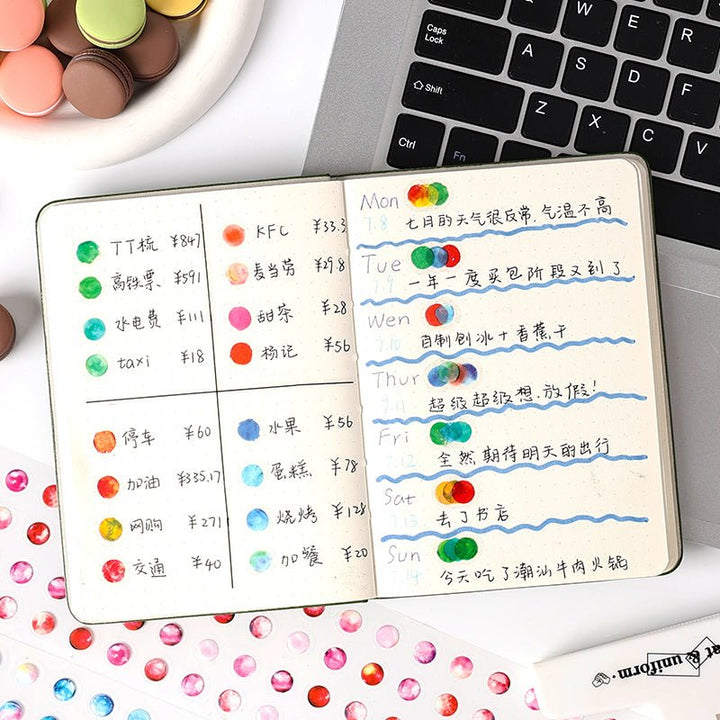 TT梳 ¥847
高铁票 ¥591
水电费 ¥111
taxi ¥18
KFC ¥33.3
麦当劳 ¥29.8
甜茶 ¥28
杨记 ¥56
停车 ¥60
加油 ¥335.17
网购 ¥271
交通 ¥40
水果 ¥56
蛋糕 ¥78
烧烤 ¥128
加餐 ¥20
Mon
7.8 七月的天气很反常,气温不高
Tue
7.9 一年一度买包阶段又到了
Wen
7.10 自制刨冰+香蕉干
Thur
7.11 超级超级想.放假!
Fri
7.12 全然期待明天的出行
Sat
7.13 去了书店
Sun
7.14 今天吃了潮汕牛肉火锅
Caps Lock
Shift
Ctrl
Fn
Q W E R
A S D F
Z X C V
at & uniform.